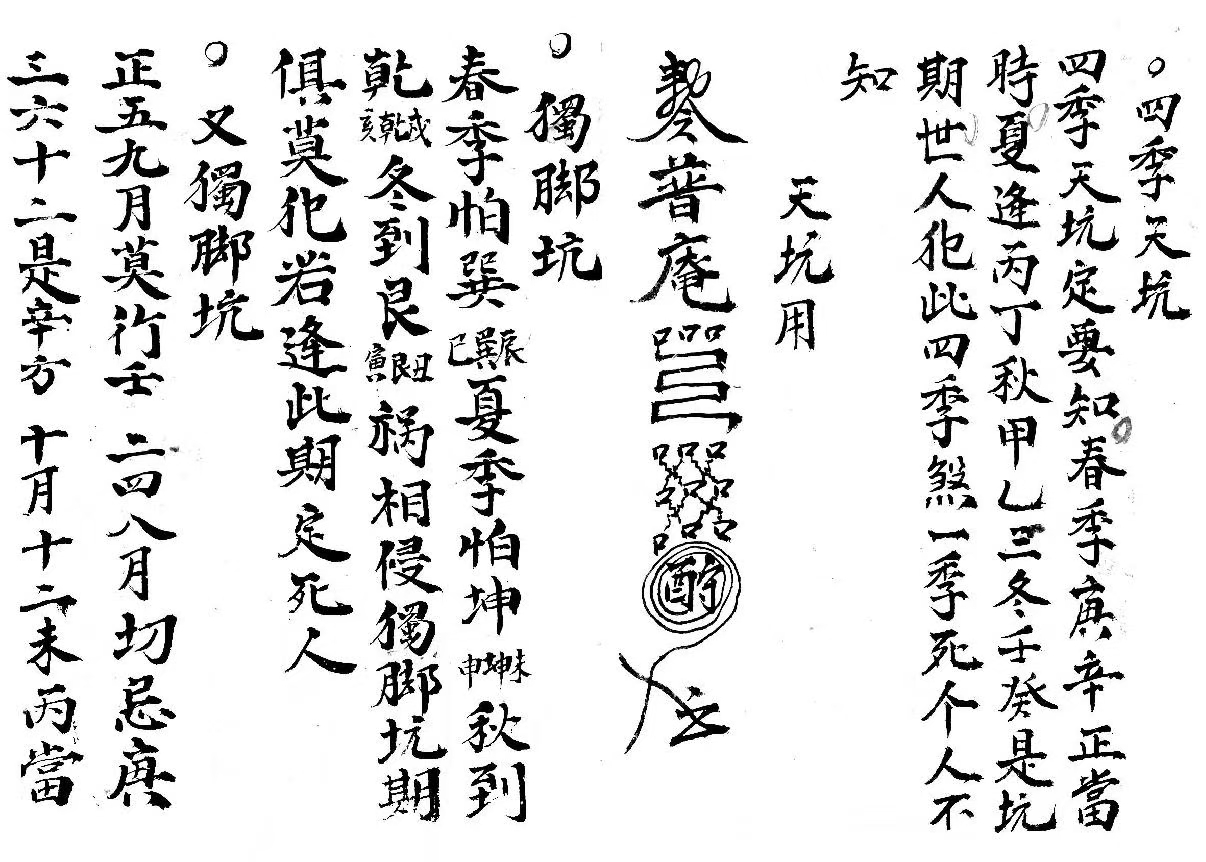 ○四季天坑
四季天坑定要知春季庚辛正當
時夏逢丙丁秋甲乙三冬壬癸是坑
期世人犯此四季煞一季死个人不
知
天坑用
普庵
○獨脚坑
春季怕巽辰巽巳夏季怕坤未坤申秋到
乾戌乾亥冬到艮丑艮寅禍相侵獨脚坑期
俱莫犯若逢此期定死人
○又獨脚坑
正五九月莫行壬 二四八月切忌庚
三六十二是辛方 十月十二未丙當